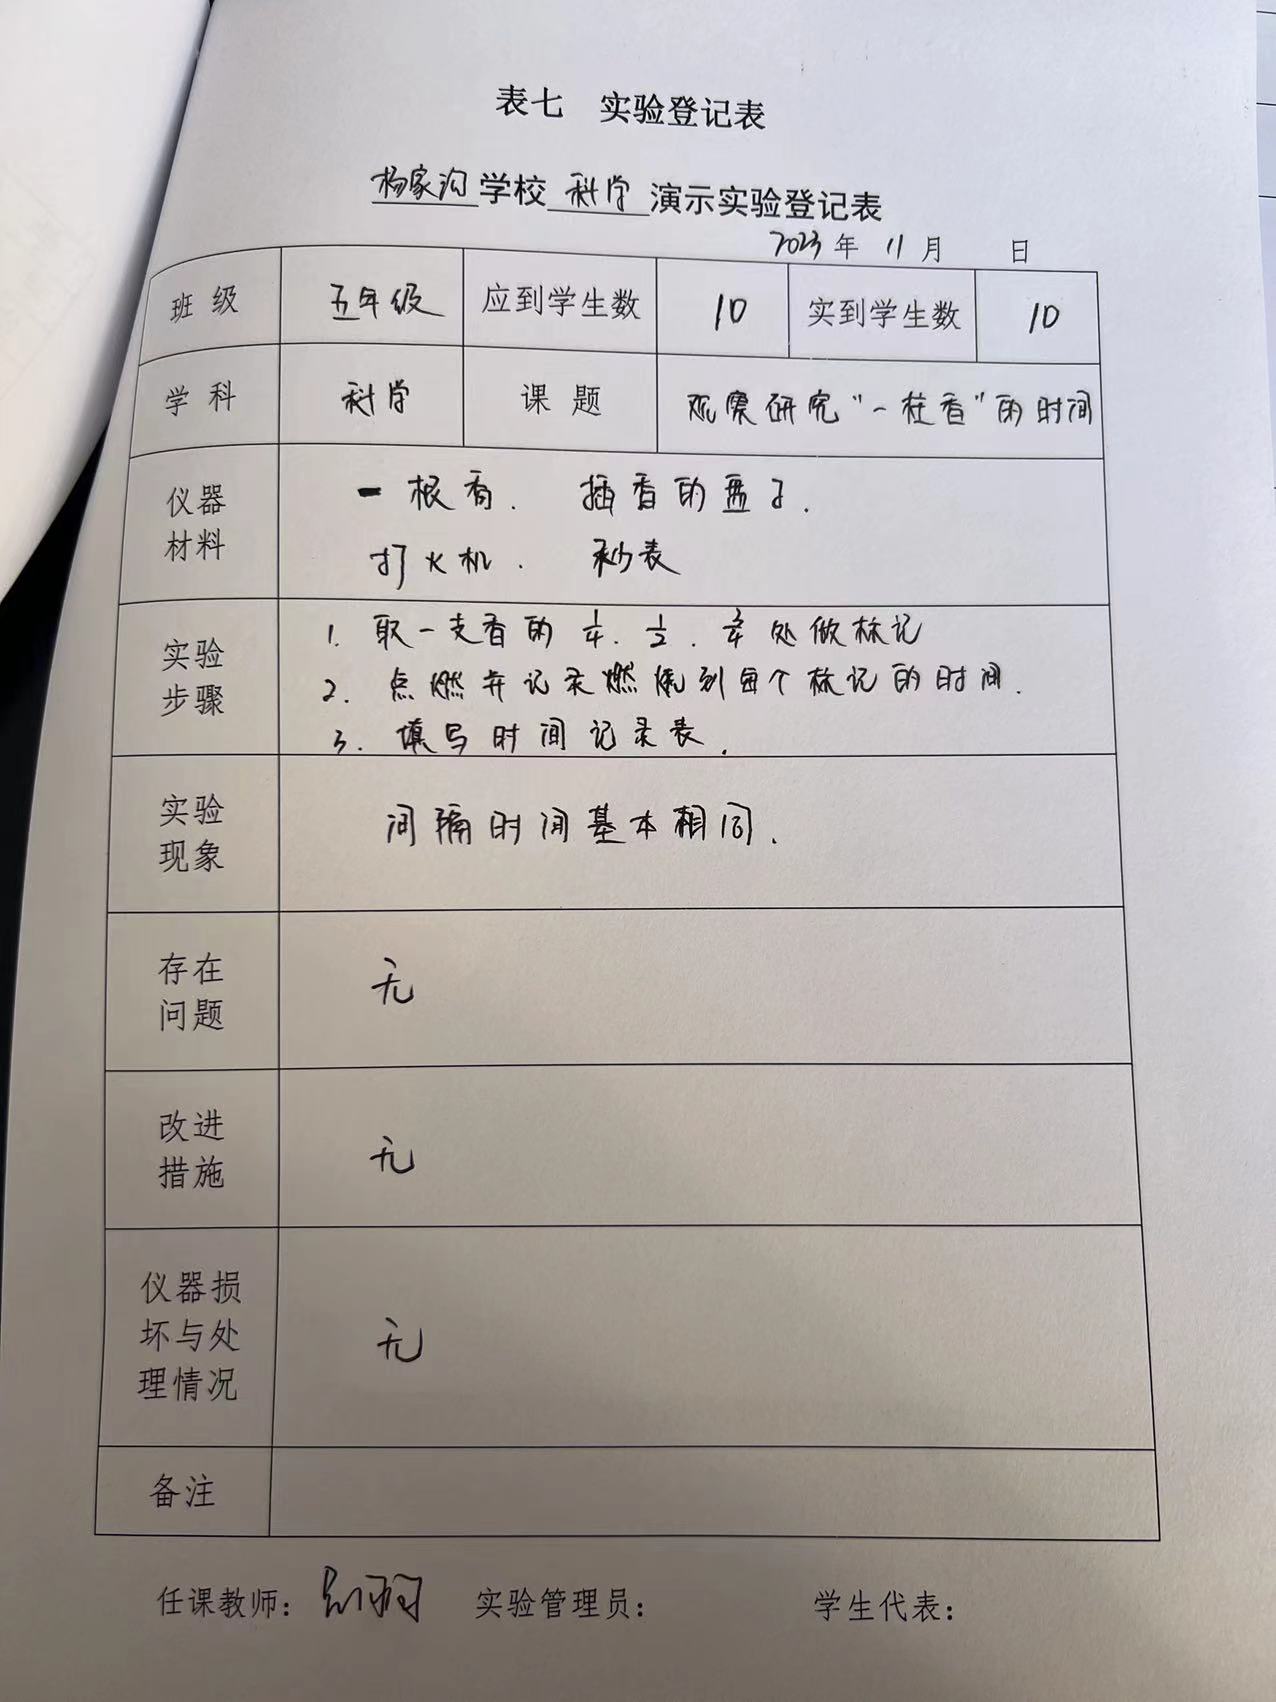 表七 实验登记表
杨家沟学校 科学 演示实验登记表
2023年 11月 日
班级 五年级 应到学生数 10 实到学生数 10
学科 科学 课题 观察研究“一柱香”的时间
仪器
材料
一根香. 插香的盘子.
打火机. 秒表
实验
步骤
1. 取一支香的 1/4. 1/2. 3/4 处做标记
2. 点燃并记录燃烧到每个标记的时间.
3. 填写时间记录表.
实验
现象
间隔时间基本相同.
存在
问题
无
改进
措施
无
仪器损
坏与处
理情况
无
备注
任课教师： 实验管理员： 学生代表：